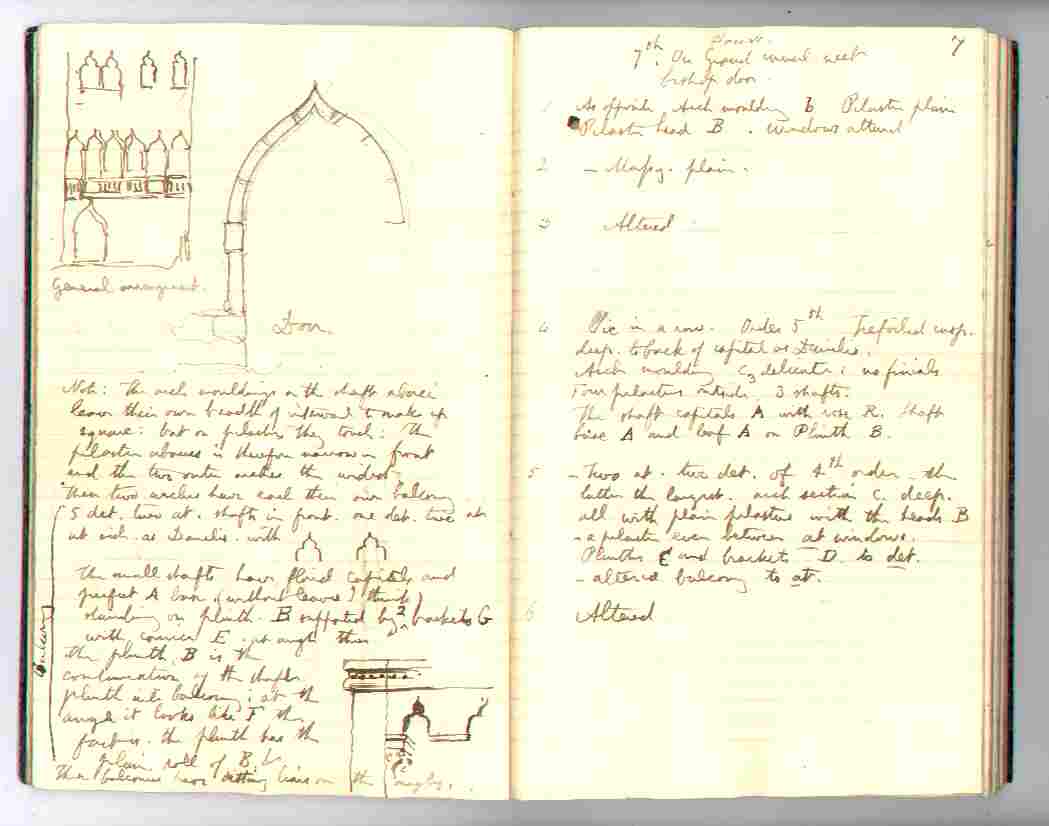 General arrangement.
Door.
Note: The arch mouldings on the shafts above
leave their own breadth of interval to make up
square: but on pilasters they touch: The
pilaster above is therefore narrow in front
and the two outer arches the widest
Then two arches have each their own balcony
5 det. two at. shafts in front. one det. two at
at side. as Danieli. with
The small shafts have florid capitals and
perfect A base (without leaves I think)
standing on plinth. B supported by 2 brackets G
with cornice E. at angle thus
the plinth, B is the
continuation of the shafts
plinth into balcony: at the
angle it looks like F the
further. the plinth has the
plain roll of B. L
The balconies have sitting lions on the angles.
Balcony
7
House.
7th. On Grand canal next
bishop door.
1 As opposite Arch moulding b Pilaster plain
Pilaster head B. windows altered
2 - Mossy. plain.
3 Altered
4 Six in a row. Order 5th Trefoiled cusp.
deep. to back of capital as Danieli.
Arch moulding c3 delicate: no finials
Four pilasters outside. 3 shafts.
The shaft capitals A with rose R. Shaft
base A and leaf A on Plinth B.
5 - Two at. two det. of 4th order - the
latter the largest. arch section c. deep.
all with plain pilasters with the heads B
- a pilaster even between at windows.
Plinths C and brackets D. to det.
- altered balcony to at.
6 Altered